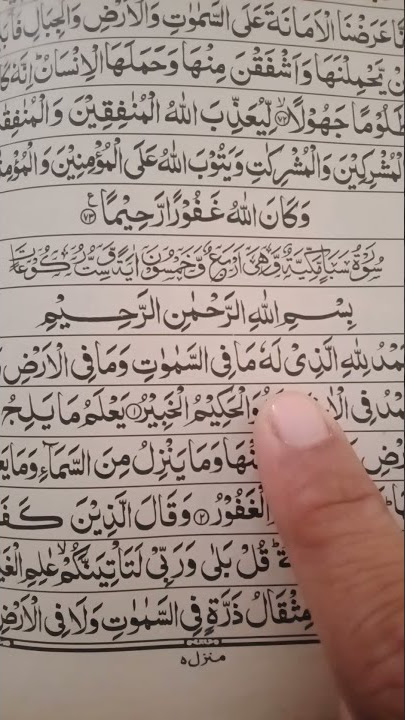 عَرَضْنَا الْاَمَانَةَ عَلَى السَّمٰوٰتِ وَالْاَرْضِ وَالْجِبَالِ
يَّحْمِلْنَهَا وَاَشْفَقْنَ مِنْهَا وَحَمَلَهَا الْاِنْسَانُ ؕ اِنَّهٗ
ظَلُوْمًا جَهُوْلًا ۙ﴿۷۲﴾ لِّيُعَذِّبَ اللّٰهُ الْمُنٰفِقِيْنَ وَ
الْمُشْرِكِيْنَ وَالْمُشْرِكٰتِ وَيَتُوْبَ اللّٰهُ عَلَى الْمُؤْمِنِيْنَ
وَكَانَ اللّٰهُ غَفُوْرًا رَّحِيْمًا ﴿۷۳﴾ ع
سُوْرَةُ سَبَاٍ مَّكِّيَّةٌ وَّهِيَ اَرْبَعٌ وَّخَمْسُوْنَ اٰيَةً وَّسِتُّ رُكُوْعَاتٍ
بِسْمِ اللّٰهِ الرَّحْمٰنِ الرَّحِيْمِ
لِلّٰهِ الَّذِيْ لَهٗ مَا فِي السَّمٰوٰتِ وَمَا فِي الْاَرْضِ
فِي وَالْحَكِيْمُ الْخَبِيْرُ ﴿۱﴾ يَعْلَمُ مَا يَلِجُ
وَمَا يَنْزِلُ مِنَ السَّمَآءِ
الْغَفُوْرُ ﴿۲﴾ وَقَالَ الَّذِيْنَ
قُلْ بَلٰى وَرَبِّيْ لَتَاْتِيَنَّكُمْ ۙ عٰلِمِ
مِثْقَالُ ذَرَّةٍ فِي السَّمٰوٰتِ وَلَا فِي الْاَرْضِ
منزل ۵